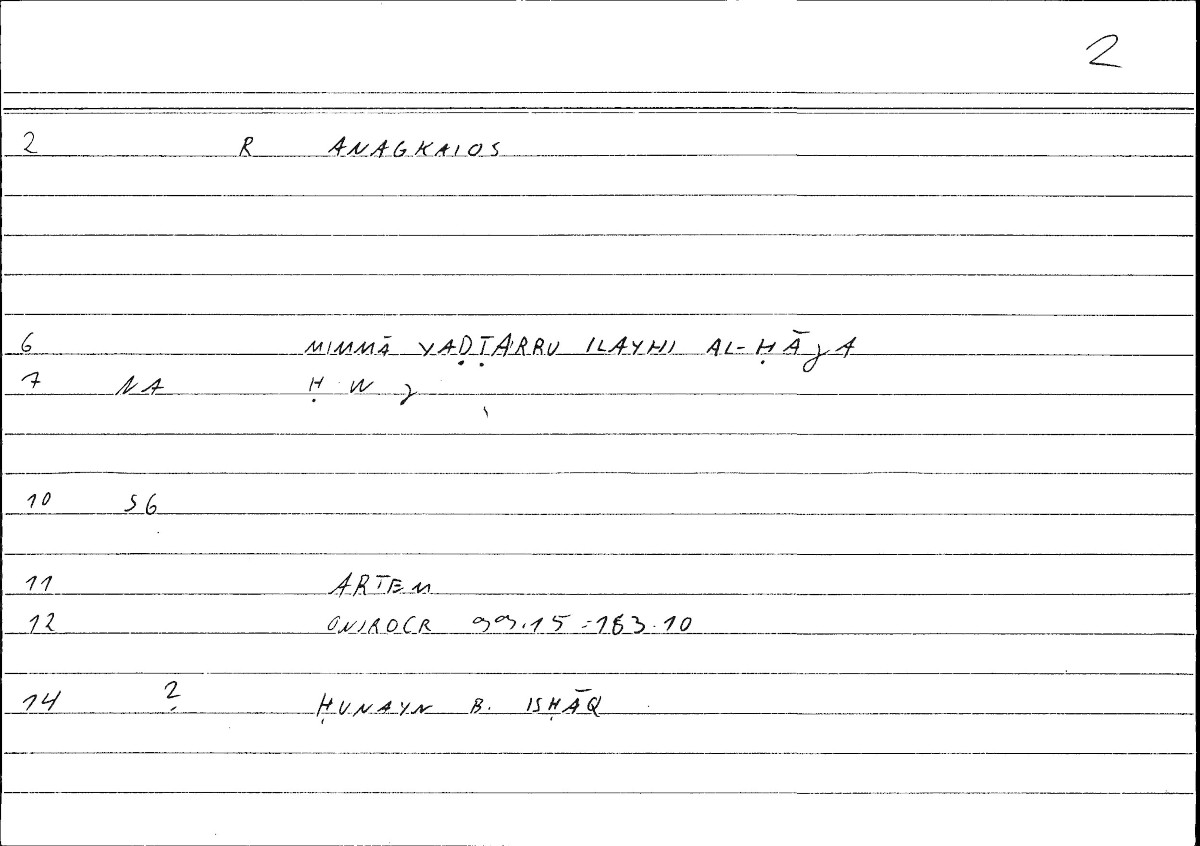 2
2 R ANAGKAIOS
6 MIMMĀ YAḌṬARRU ILAYHI AL-ḤĀǧA
7 NA Ḥ W ǧ
10 SG
11 ARTEM
12 ONIROCR 99.15 = 183.10
14 2 ḤUNAYN B. ISḤĀQ